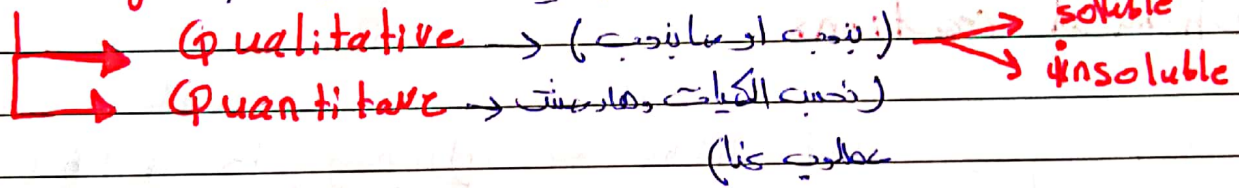 Qualitative → (بنوب او مابنوب) → soluble
→ insoluble
Quantitave → (نحسب الكميات وهاد مش
مطلوب عنا)